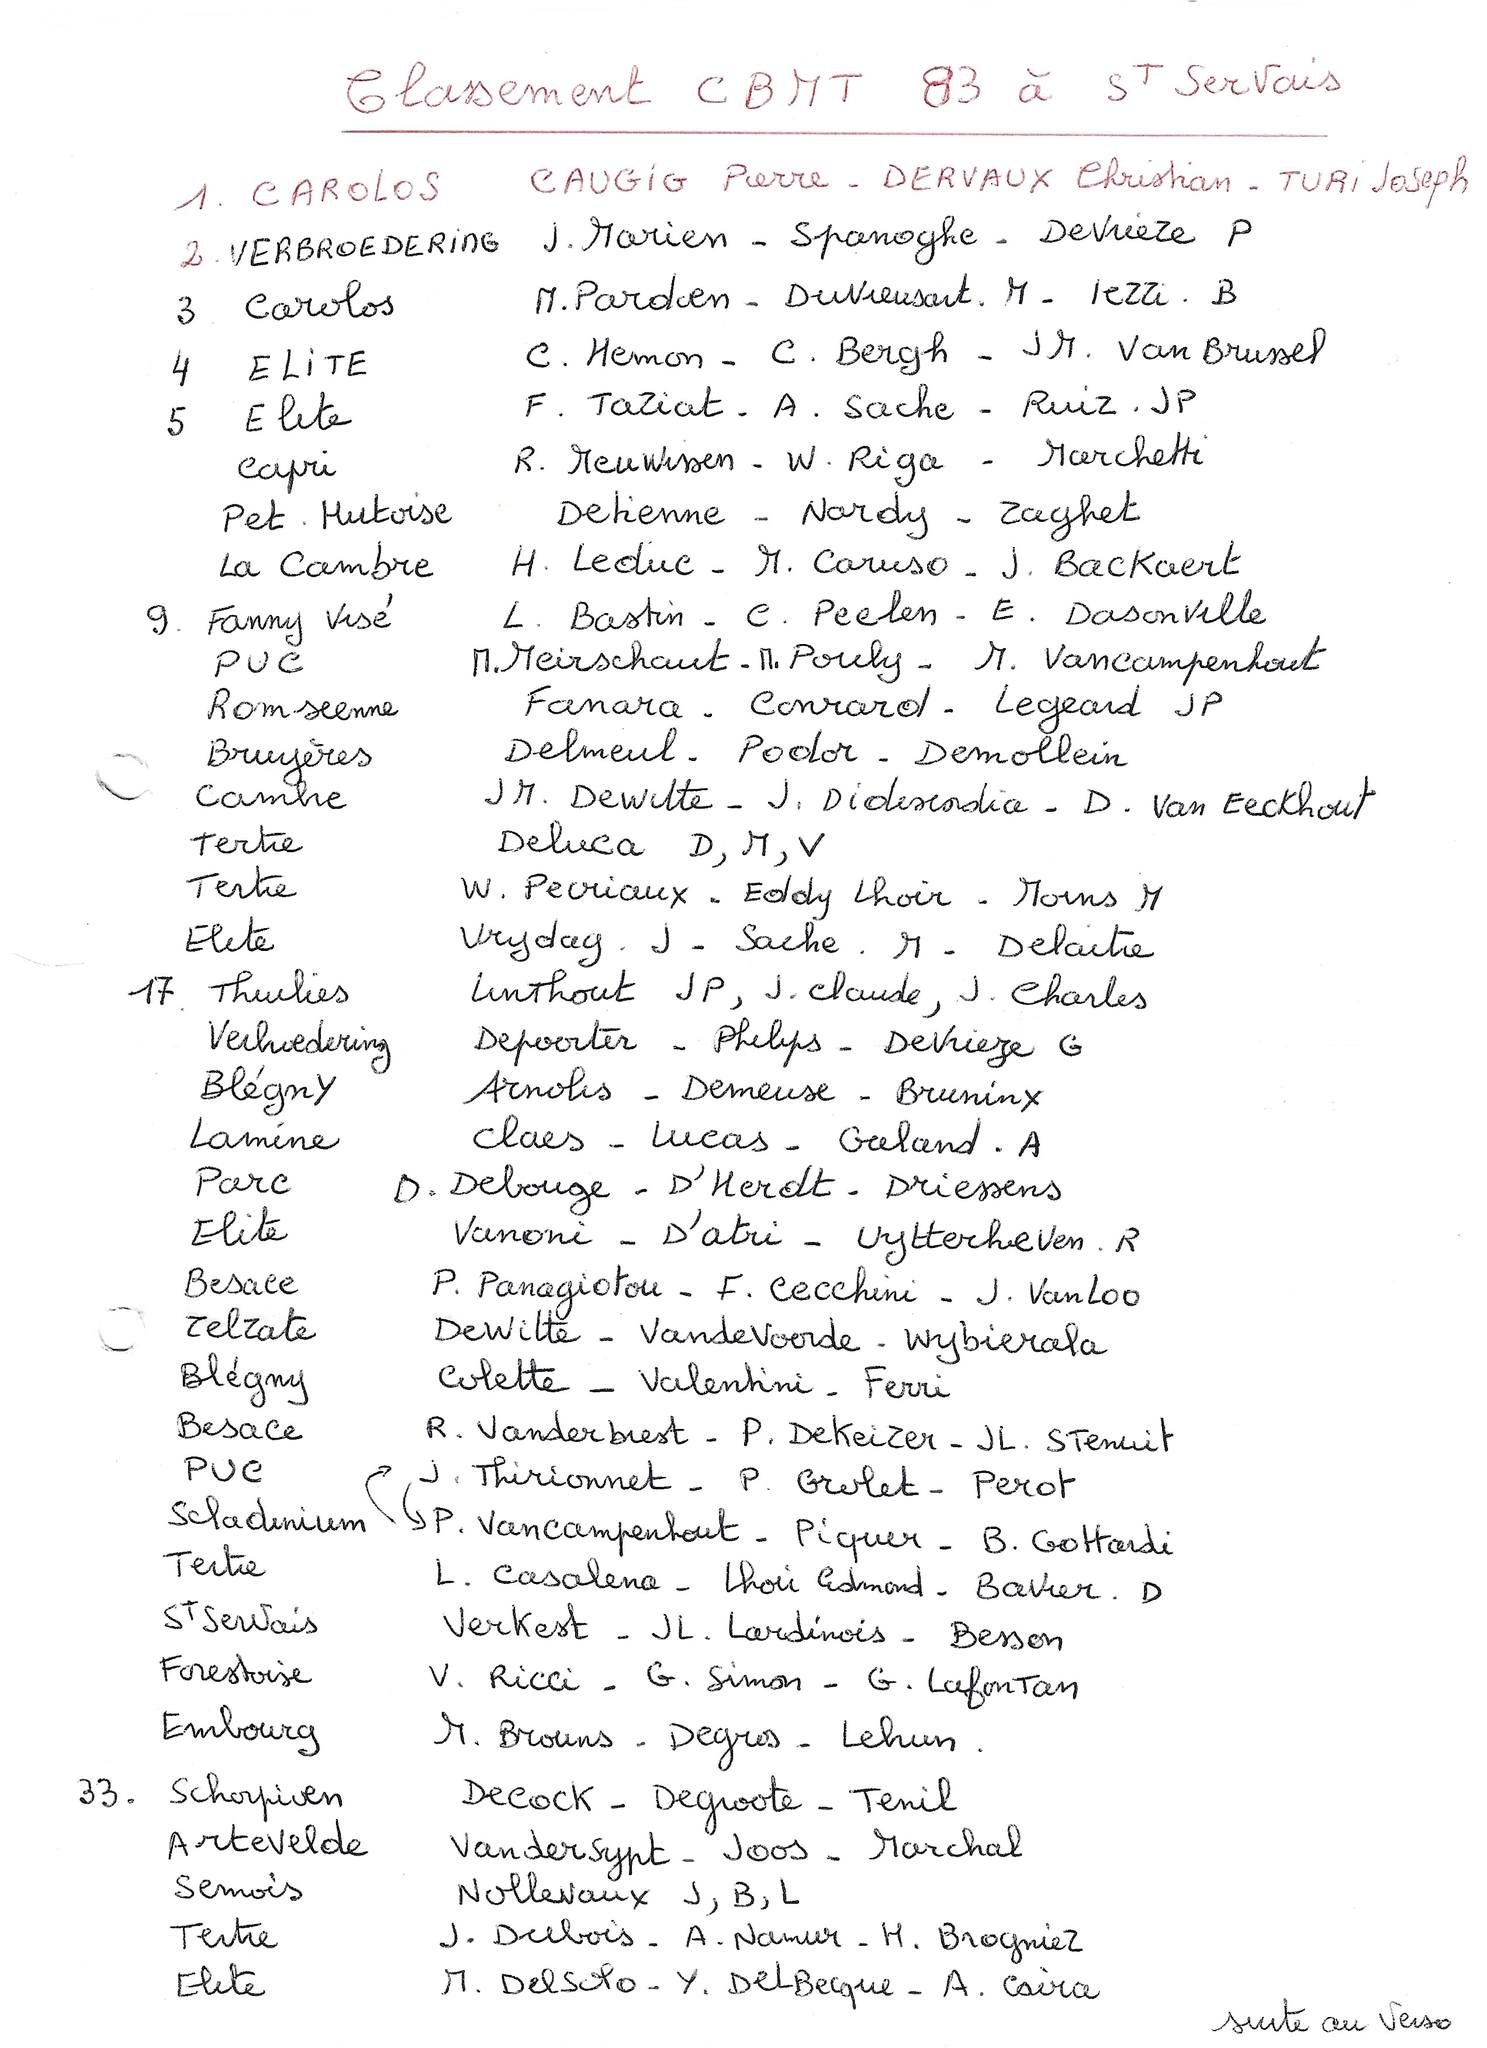 Classement CBMT 83 à ST Servais
1. CAROLOS CAUGIG Pierre - DERVAUX Christian - TURI Joseph
2. VERBROEDERING J. Marien - Spanoghe - DeVrieze P
3 Carolos M. Pardoen - DuVieusart. M - Iezzi. B
4 ELITE C. Hemon - C. Bergh - JM. Van Brussel
5 Elite F. Taziat - A. Sache - Ruiz. JP
Capri R. Meuwissen - W. Riga - Marchetti
Pet. Hutoise Detienne - Nardy - Zaghet
La Cambre H. Leduc - M. Caruso - J. Backaert
9. Fanny Visé L. Bastin - C. Peelen - E. Dasonville
PUC M. Meirschaut - M. Pouly - M. Vancampenhout
Romseenne Fanara - Conrard - Legeard JP
Bruyères Delmeul - Podor - Demollein
Cambre JM. Dewitte - J. - D. Van Eeckhout
Tertre Deluca D, M, V
Tertre W. Pevriaux - Eddy Lhoir - Moins M
Elite Vrydag. J - Sache. M - Delaitre
17. Thulies Linthout JP, J. Claude, J. Charles
Verbroedering Depoorter - Philips - DeVrieze G
Blégny Arnolis - Demeuse - Bruninx
Lamine Claes - Lucas - Galand. A
Parc D. Debouge - D'Herdt - Driessens
Elite Vanoni - D'atri - Uytterheven. R
Besace P. Panagiotou - F. Cecchini - J. VanLoo
Zelzate DeWitte - VandeVoorde - Wybierala
Blégny Colette - Valentini - Ferri
Besace R. Vanderbiest - P. DeKeizer - JL. Stenuit
PUC J. Thirionnet - P. Grolet - Perot
Scladinium P. Vancampenhout - Piquer - B. Gottardi
Tertre L. Casalena - Lhoir Edmond - Bavier. D
ST Servais Verkest - JL. Lardinois - Besson
Forestoise V. Ricci - G. Simon - G. Lafontan
Embourg M. Brouns - Degros - Lehun.
33. Schorpioen Decock - Degroote - Tenil
Artevelde Vandersypt - Joos - Marchal
Semois Nollevaux J, B, L
Tertre J. Dubois - A. Namur - H. Brogniez
Elite M. DelSolo - Y. DelBecque - A. Caira
suite au verso